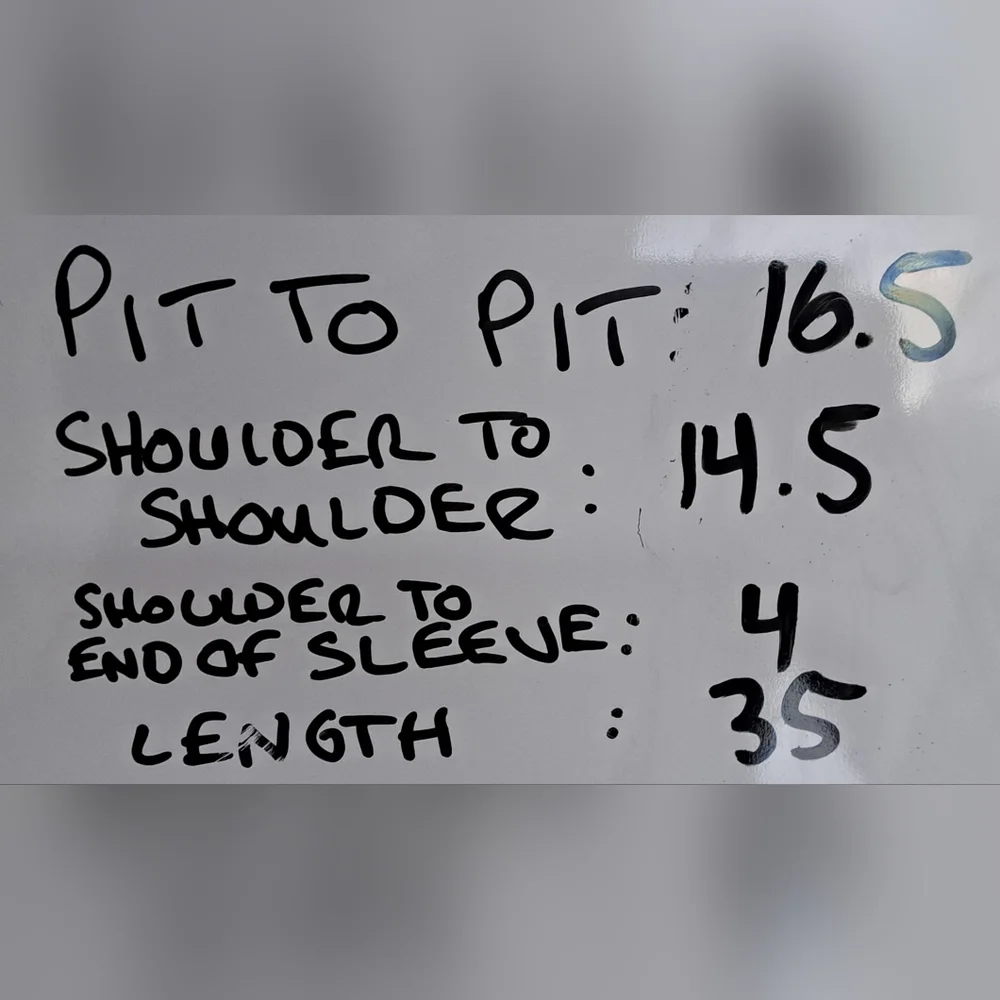 PIT TO PIT: 16.5
SHOULDER TO
SHOULDER : 14.5
SHOULDER TO
END OF SLEEVE: 4
LENGTH : 35